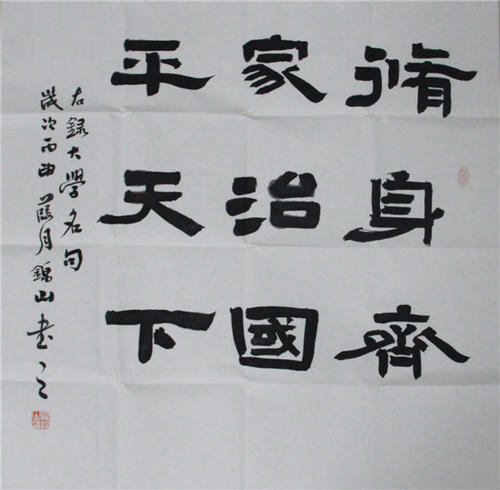 脩身齊
家治國
平天下
右録大學名句
歲次丙申月錦山書之